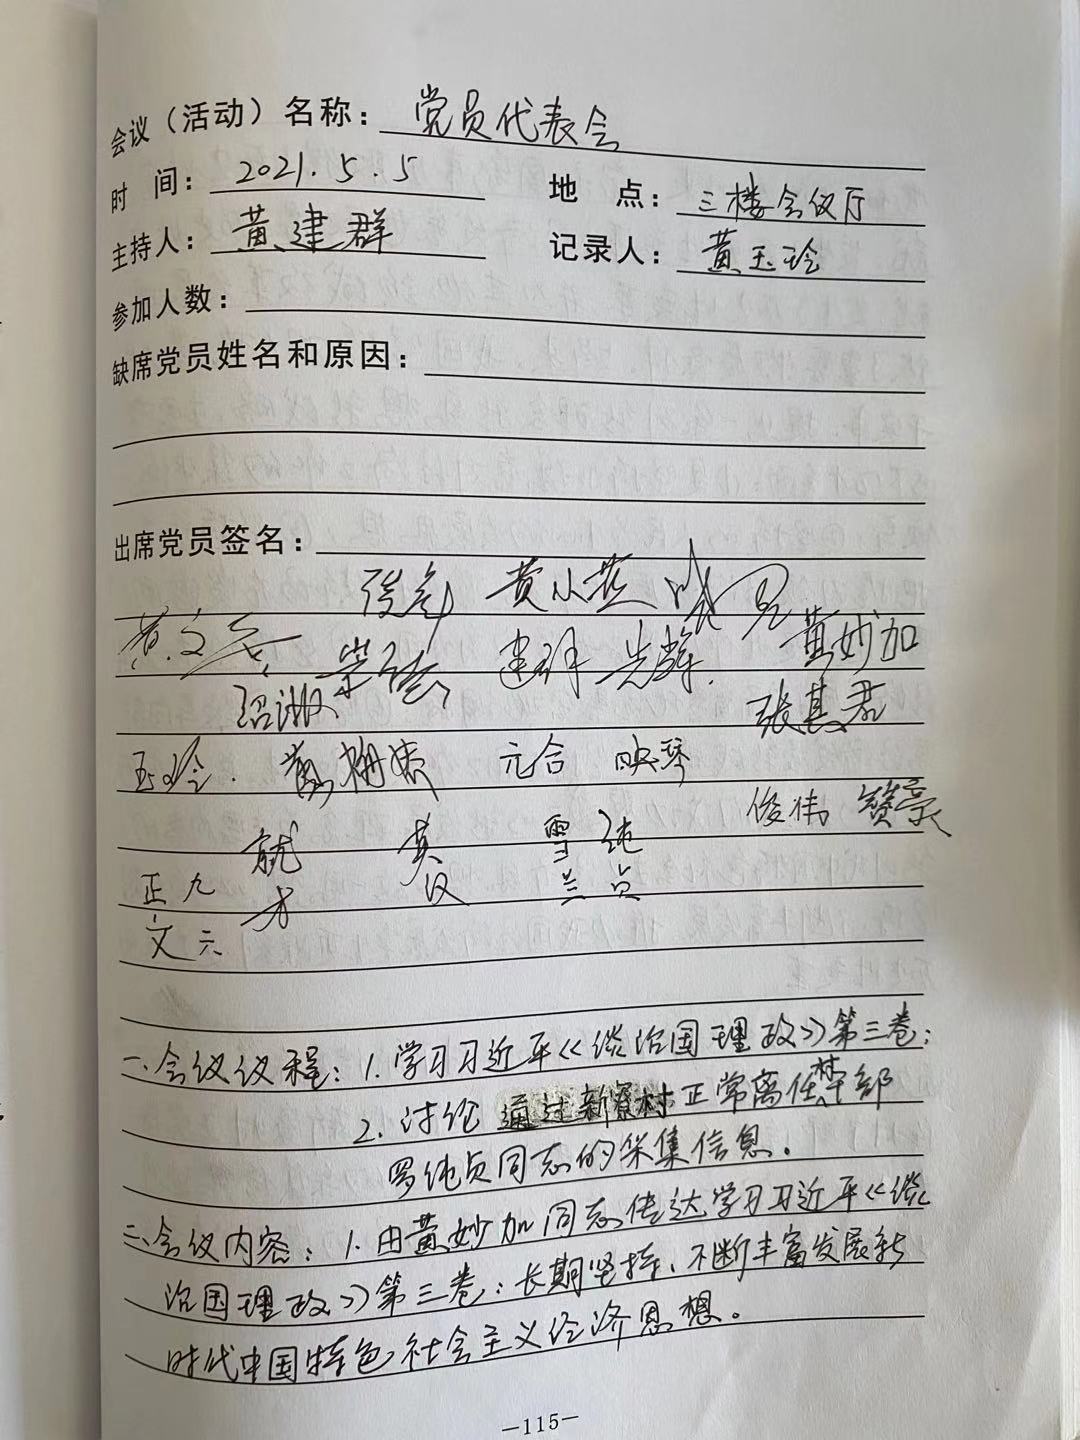 会议（活动）名称：党员代表会
时 间：2021.5.5 地 点：三楼会议厅
主持人：黄建群 记录人：黄玉玲
参加人数：
缺席党员姓名和原因：
出席党员签名：
黄小燕
建群 先辉 黄妙加
绍淑 张其君
玉玲 元合 映琴
俊伟 赞豪
就才 英汉 雪兰 纯贞
正文 九六
一、会议议程：1.学习习近平《谈治国理政》第三卷：
2.讨论通过新寮村正常离任村干部
罗纯贞同志的采集信息。
二、会议内容：1.由黄妙加同志传达学习习近平《谈
治国理政》第三卷：长期坚持、不断丰富发展新
时代中国特色社会主义经济思想。
—115—